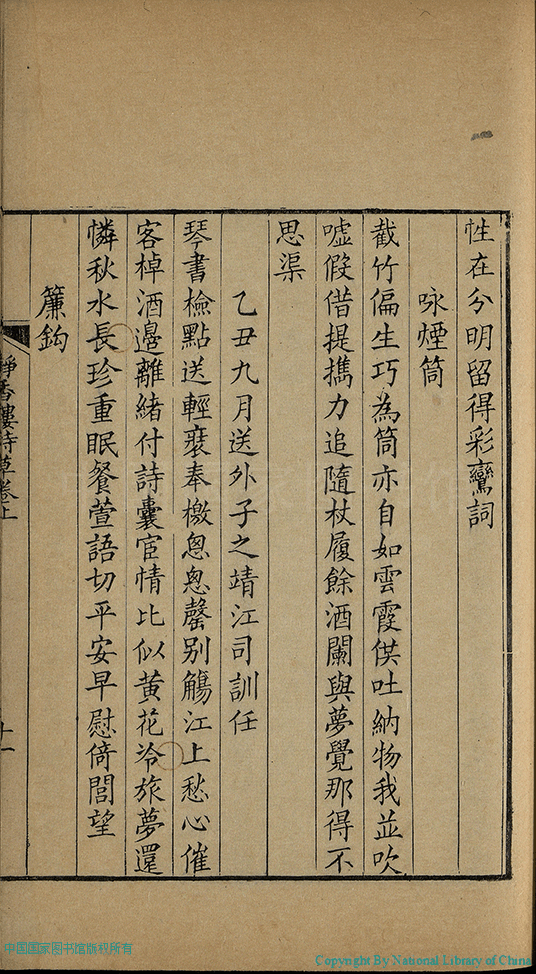 性在分明留得彩鸞詞
咏煙筒
截竹偏生巧為筒亦自如雲霞供吐納物我並吹
嘘假借提攜力追隨杖履餘酒闌與夢覺那得不
思渠
乙丑九月送外子之靖江司訓任
琴書檢點送輕裝奉檄怱怱罄别觴江上愁心催
客棹酒邊離緒付詩囊宦情比似黄花冷旅夢還
憐秋水長珍重眠餐萱語切平安早慰倚閭望
簾鈎
香樓詩草卷上
十一
中国国家图书馆版权所有
Copyright By National Library of China